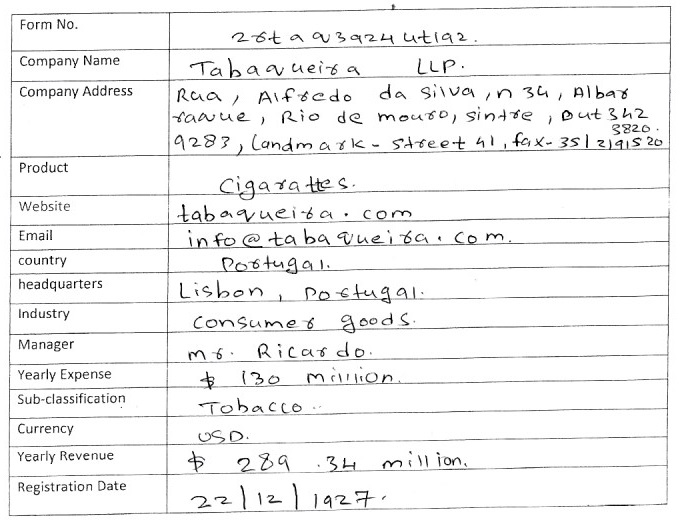 Form No. 28taqv3924ut192.
Company Name Tabaqueira LLP.
Company Address Rua, Alfredo da silva, n 34, Albar
raque, Rio de mouro, sintre, out 342
3820.
9283, Landmark - street 41, fax- 351 2191520
Product Cigarattes.
Website tabaqueira.com
Email info@tabaqueira.com.
country Portugal.
headquarters Lisbon, Portugal.
Industry Consumer goods.
Manager mr. Ricardo.
Yearly Expense $ 130 million.
Sub-classification Tobacco.
Currency USD.
Yearly Revenue $ 289.34 million.
Registration Date 22/12/1927.